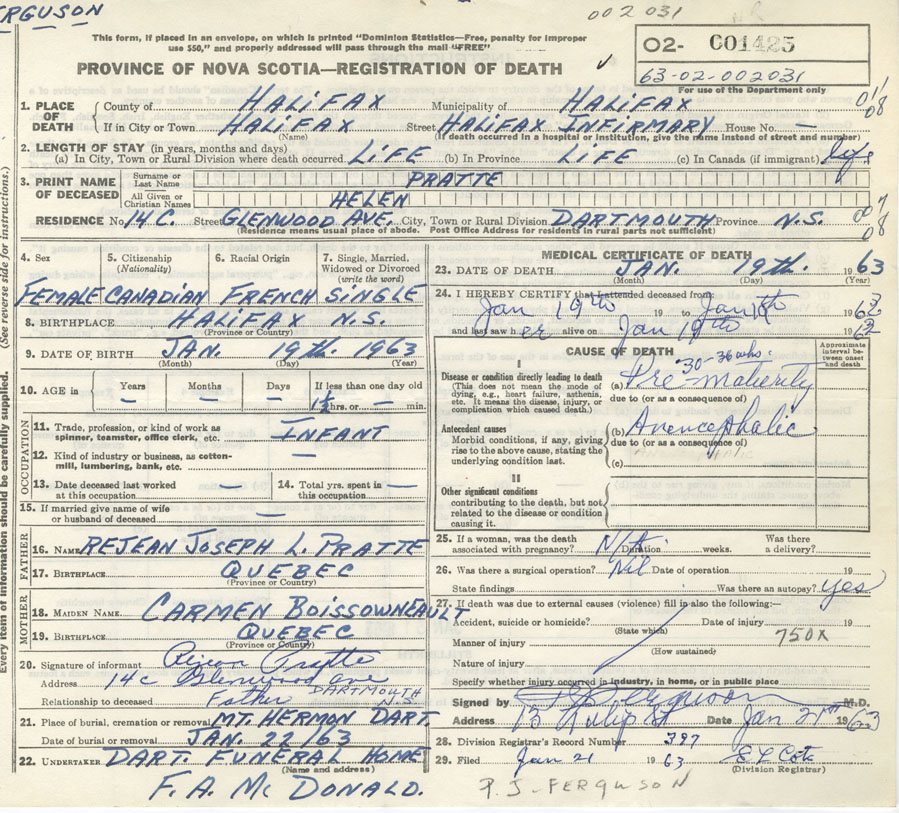 ERGUSON
002031
This form, if placed in an envelope, on which is printed "Dominion Statistics—Free, penalty for improper
use $50," and properly addressed will pass through the mail "FREE"
PROVINCE OF NOVA SCOTIA—REGISTRATION OF DEATH
O2- C01425
63-02-002031
For use of the Department only
1. PLACE OF DEATH County of HALIFAX Municipality of HALIFAX
If in City or Town HALIFAX Street HALIFAX INFIRMARY House No. —
(Name) (If death occurred in a hospital or institution, give the name instead of street and number)
01/08
2. LENGTH OF STAY (in years, months and days)
(a) In City, Town or Rural Division where death occurred LIFE (b) In Province LIFE (c) In Canada (if immigrant) life
3. PRINT NAME OF DECEASED Surname or Last Name PRATTE
All Given or Christian Names HELEN
RESIDENCE No. 14C. Street GLENWOOD AVE. City, Town or Rural Division DARTMOUTH Province N.S.
(Residence means usual place of abode. Post Office Address for residents in rural parts not sufficient)
(See reverse side for instructions.)
Every item of information should be carefully supplied.
4. Sex 5. Citizenship (Nationality) 6. Racial Origin 7. Single, Married, Widowed or Divorced (write the word)
FEMALE CANADIAN FRENCH SINGLE
8. BIRTHPLACE HALIFAX N.S.
(Province or Country)
9. DATE OF BIRTH JAN. 19th. 1963
(Month) (Day) (Year)
10. AGE in Years Months Days If less than one day old
— — — 1½ hrs. or — min.
OCCUPATION
11. Trade, profession, or kind of work as spinner, teamster, office clerk, etc. INFANT
12. Kind of industry or business, as cotton-mill, lumbering, bank, etc. —
13. Date deceased last worked at this occupation — 14. Total yrs. spent in this occupation —
15. If married give name of wife or husband of deceased —
FATHER
16. NAME REJEAN JOSEPH L. PRATTE
17. BIRTHPLACE QUEBEC
(Province or Country)
MOTHER
18. MAIDEN NAME CARMEN BOISSOWNEAULT
19. BIRTHPLACE QUEBEC
(Province or Country)
20. Signature of informant Pratte
Address 14c Glenwood ave DARTMOUTH N.S.
Relationship to deceased Father
21. Place of burial, cremation or removal MT. HERMON DART.
Date of burial or removal JAN. 22/63
22. UNDERTAKER DART. FUNERAL HOME
(Name and address)
F. A. McDONALD.
MEDICAL CERTIFICATE OF DEATH
23. DATE OF DEATH JAN. 19th. 1963
(Month) (Day) (Year)
24. I HEREBY CERTIFY that I attended deceased from:
Jan 19th 19 to Jan 1963
and last saw her alive on Jan 19th 1963
CAUSE OF DEATH
Approximate interval between onset and death
I
Disease or condition directly leading to death
(This does not mean the mode of dying, e.g., heart failure, asthenia, etc. It means the disease, injury, or complication which caused death.)
30-36 wks.
(a) Pre-maturity
due to (or as a consequence of)
Antecedent causes
Morbid conditions, if any, giving rise to the above cause, stating the underlying condition last.
(b) Anencephalic
due to (or as a consequence of)
(c)
II
Other significant conditions
contributing to the death, but not related to the disease or condition causing it.
25. If a woman, was the death associated with pregnancy? N/ Duration weeks. Was there a delivery?
26. Was there a surgical operation? Nil Date of operation 19
State findings Was there an autopsy? yes
27. If death was due to external causes (violence) fill in also the following:—
Accident, suicide or homicide? Date of injury 19
(State which)
750X
Manner of injury
(How sustained)
Nature of injury
Specify whether injury occurred in industry, in home, or in public place
Signed by Ferguson M.D.
Address 13 Tulip St Date Jan 21st 1963
28. Division Registrar's Record Number 397
29. Filed Jan 21 1963
(Division Registrar)
P. J. FERGUSON